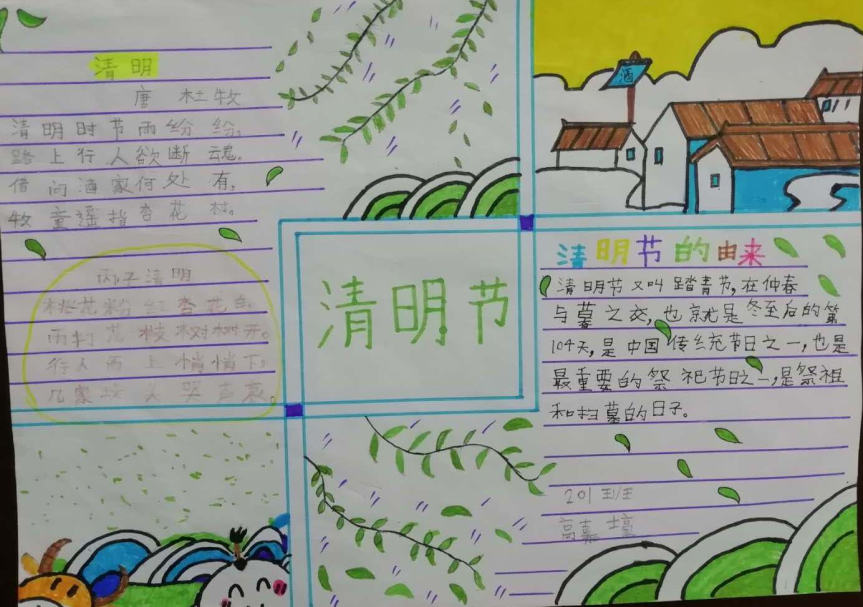 清明
唐 杜牧
清明时节雨纷纷,
路上行人欲断魂,
借问酒家何处有,
牧童遥指杏花村。
丙子清明
桃花粉红杏花白。
雨打花枝树树开。
行人雨上悄悄下。
几家坟头哭声哀。
酒
清明节
清明节的由来
清明节又叫踏青节,在仲春
与暮之交,也就是冬至后的第
104天,是中国传统充节日之一,也是
最重要的祭祀节日之一,是祭祖
和扫墓的日子。
201班
高嘉